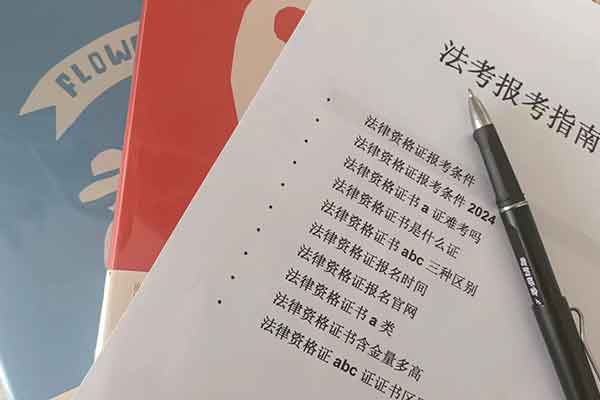 FLOWE
法考报考指南
法律资格证报考条件
法律资格证报考条件 2024
法律资格证书 a 证难考吗
法律资格证书是什么证
法律资格证书 abc 三种区别
法律资格证报名时间
法律资格证报名官网
法律资格证书 a 类
法律资格证书含金量多高
法律资格证 abc 证证书区别